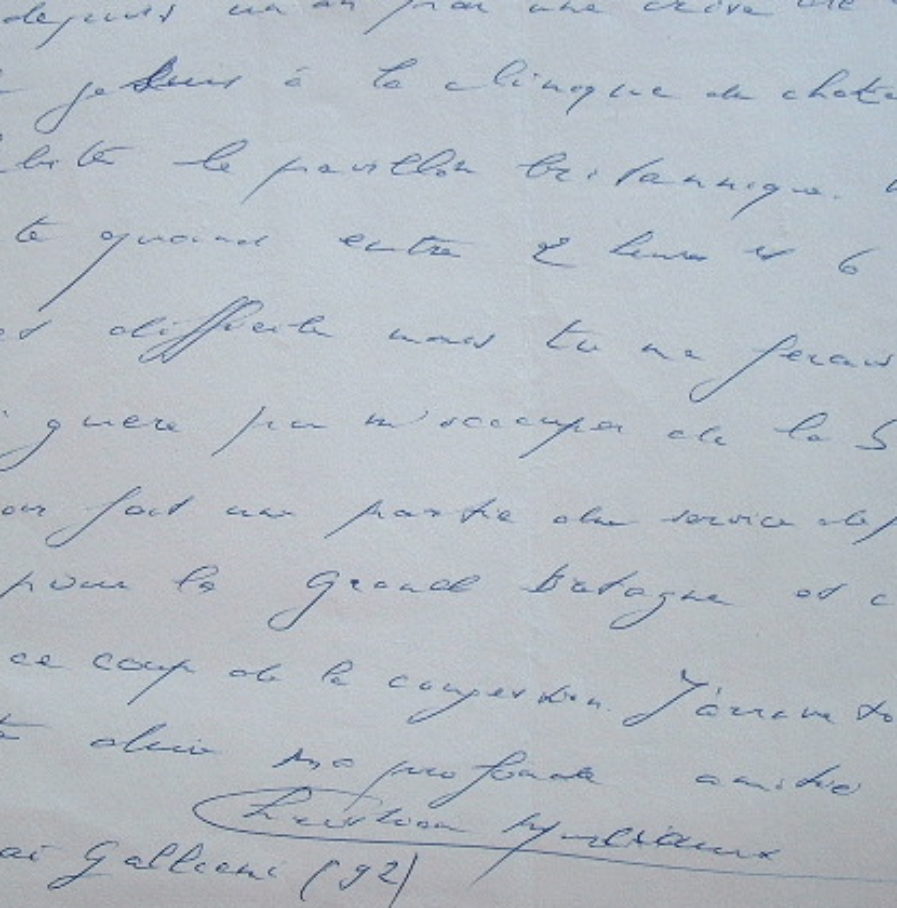 depuis un an par une crise de
je suis à la clinique du chate
bite le pavillon britannique.
te quand entre 2 heures et 6
difficile mais tu me ferais
guere pu m'occuper de la S
fait une partie du service de
pour la Grand Bretagne et c
ce coup de la congestion. J'arrive to
dire ma profonde amitié
Christian
ai Gallieni (92)